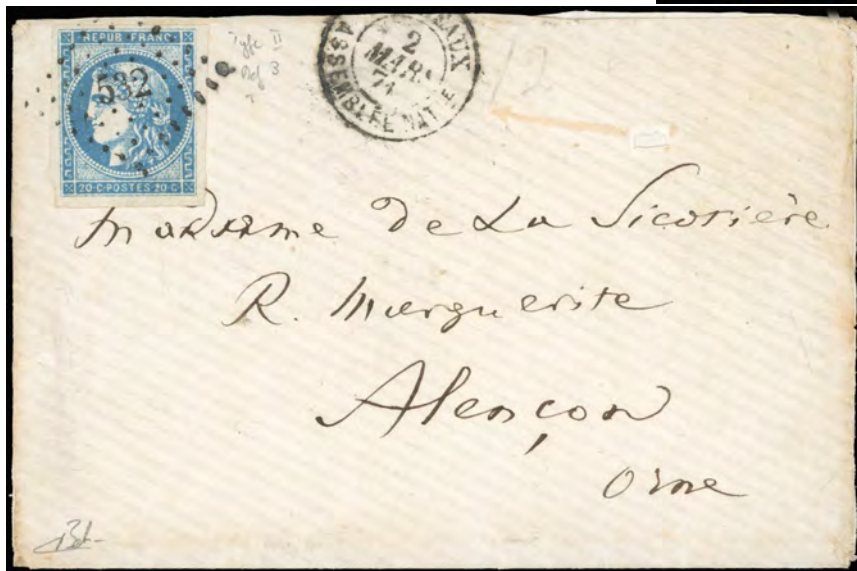 REPUB FRANC
532
20 C·POSTES 20 C
Type II
Rep 3
EAUX
2
MARS
71
ASSEMBLÉE NAT LE
12
Madame de La Sicotière
R. Marguerite
Alençon
Orne